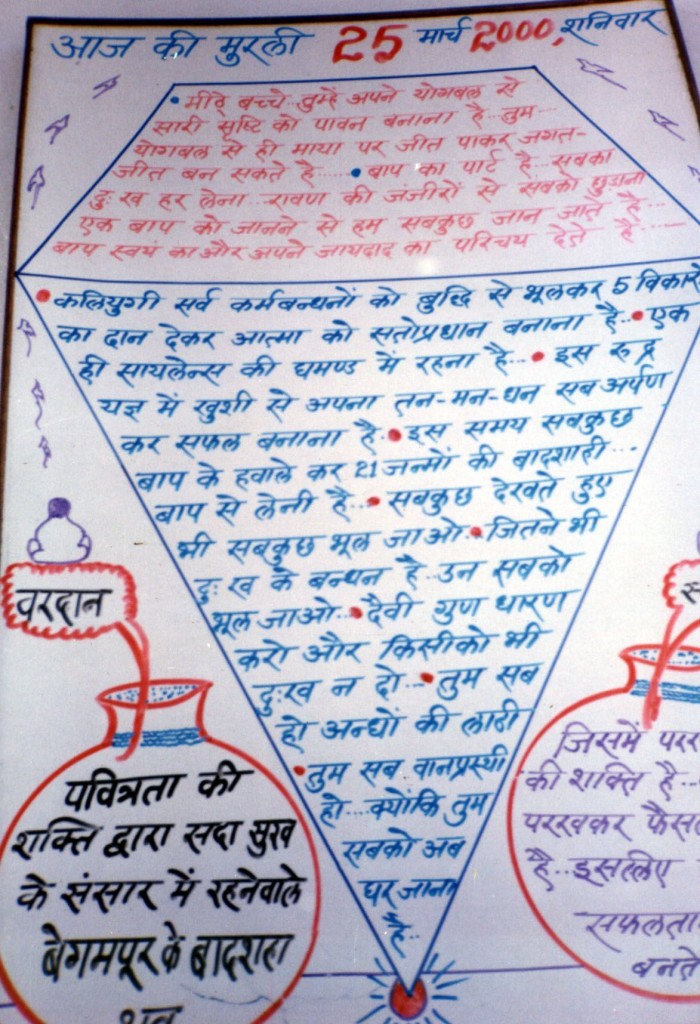 आज की मुरली 25 मार्च 2000, शनिवार
• मीठे बच्चे.. तुम्हें अपने योगबल से
सारी सृष्टि को पावन बनाना है.. तुम....
योगबल से ही माया पर जीत पाकर जगत-
जीत बन सकते है.... • बाप का पार्ट है.. सबका
दुःख हर लेना.. रावण की जंजीरों से सबको छुड़ाना
एक बाप को जानने से हम सबकुछ जान जाते है...
बाप स्वयं का और अपने जायदाद का परिचय देते है.....
• कलियुगी सर्व कर्मबन्धनों को बुद्धि से भूलकर 5 विकारों
का दान देकर आत्मा को सतोप्रधान बनाना है..• एक
ही सायलेन्स की घमण्ड में रहना है...• इस रूद्र
यज्ञ में खुशी से अपना तन-मन-धन सब अर्पण
कर सफल बनाना है.• इस समय सबकुछ
बाप के हवाले कर 21 जन्मों की बादशाही...
बाप से लेनी है..• सबकुछ देखते हुए
भी सबकुछ भूल जाओ..• जितने भी
दुःख के बन्धन है..उन सबको
भूल जाओ..• दैवी गुण धारण
करो और किसीको भी
दुःख न दो..• तुम सब
हो अन्धों की लाठी
• तुम सब वानप्रस्थी
हो..क्योंकि तुम
सबको अब
घर जाना
है..
वरदान
पवित्रता की
शक्ति द्वारा सदा सुख
के संसार में रहनेवाले
बेगमपूर के बादशहा
भव
जिसमें
की शक्ति है..
परखकर
है..इसलिए
सफलता
बनते